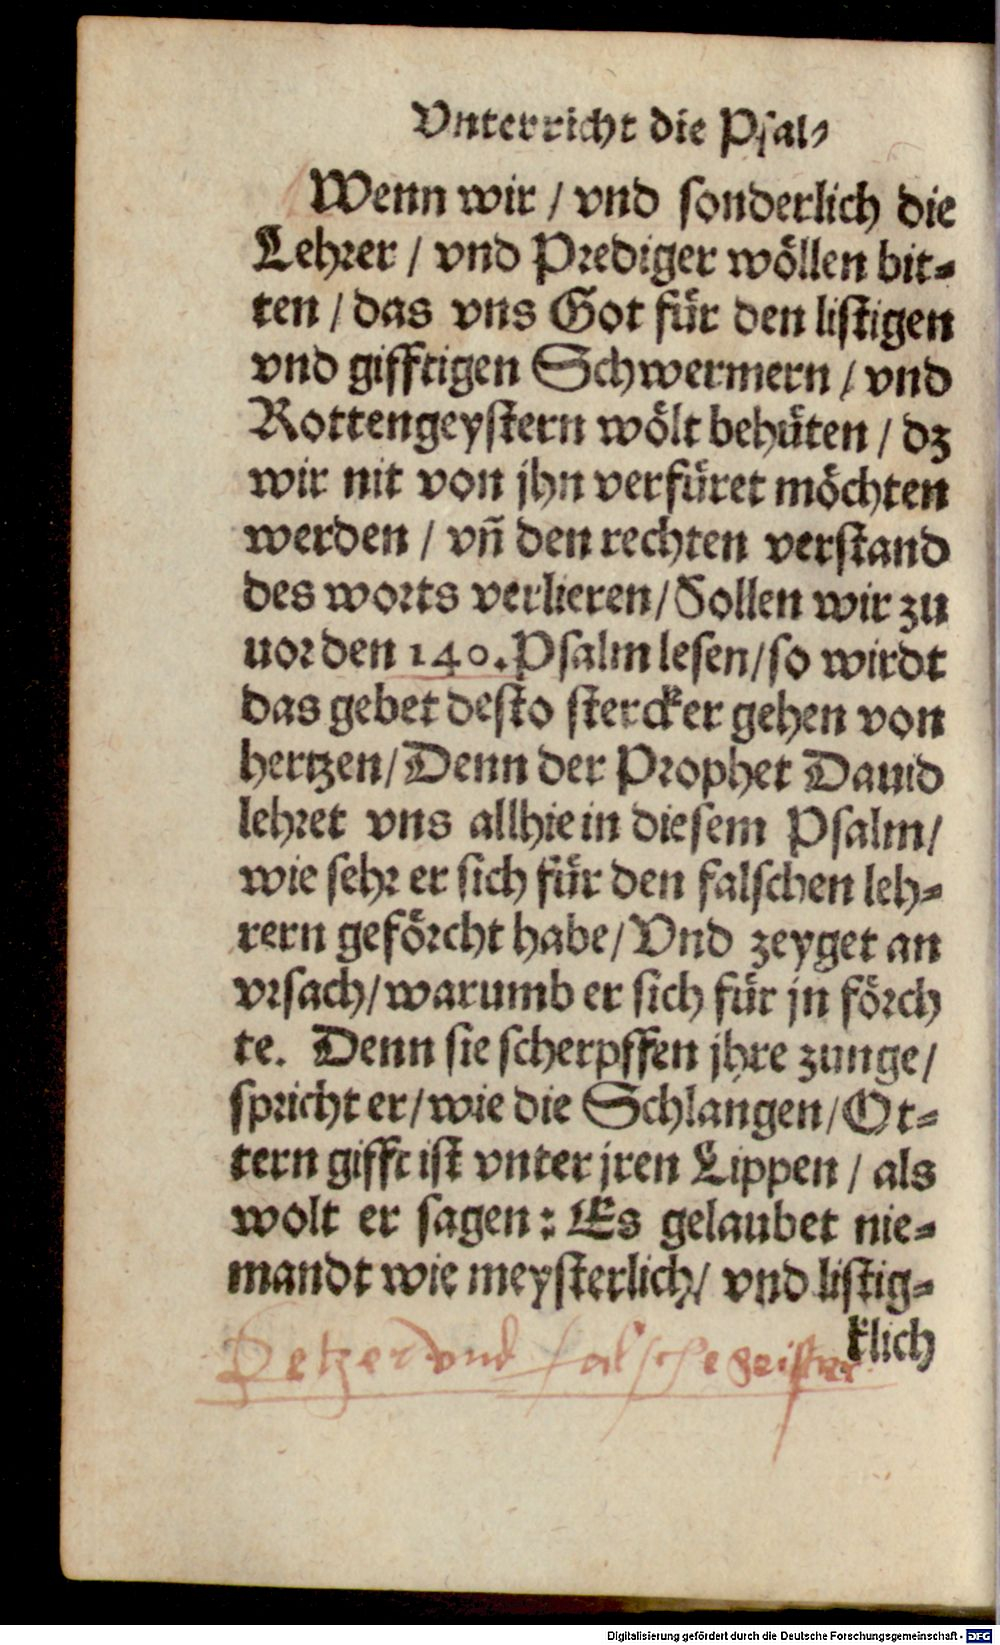 Vnterricht die Psal⸗
Wenn wir / vnd sonderlich die
Lehrer / vnd Prediger wöllen bit⸗
ten / das vns Got für den listigen
vnd gifftigen Schwermern / vnd
Rottengeystern wölt behüten / dz
wir nit von jhn verfüret möchten
werden / vñ den rechten verstand
des worts verlieren / Sollen wir zu
uor den 140. Psalm lesen / so wirdt
das gebet desto stercker gehen von
hertzen / Denn der Prophet Dauid
lehret vns allhie in diesem Psalm /
wie sehr er sich für den falschen leh⸗
rern geförcht habe / Vnd zeyget an
vrsach / warumb er sich für jn förch
te. Denn sie scherpffen jhre zunge /
spricht er / wie die Schlangen / Ot⸗
tern gifft ist vnter jren Lippen / als
wolt er sagen : Es gelaubet nie⸗
mandt wie meysterlich / vnd listig⸗
klich
Ketzer vnd falsche geister
Digitalisierung gefördert durch die Deutsche Forschungsgemeinschaft - DFG